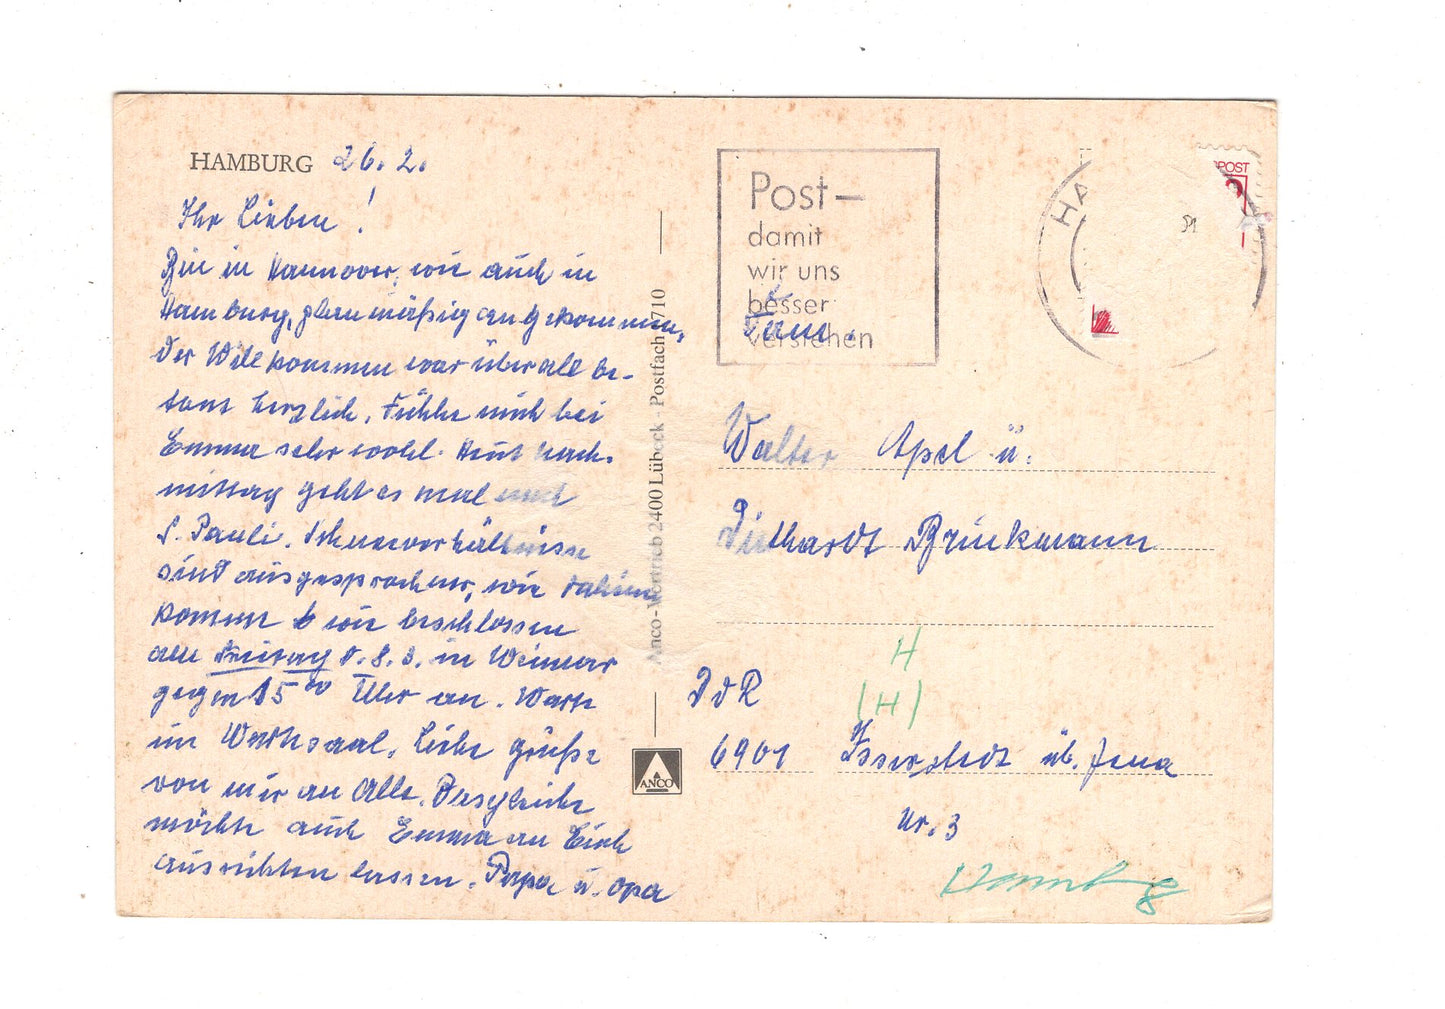 HAMBURG 26.2.
Ihr Lieben!
Bin in Hannover, wie auch in
Hamburg, planmäßig angekommen,
der Willkommen war überall be-
tont herzlich. Fühle mich bei
Emma sehr wohl. Heut nach-
mittag geht es mal nach
S. Pauli. Schneeverhältnisse
sind ausgesprochener, wie daheim
komme wie beschlossen
am Freitag d. 8.3. in Weimar
gegen 15⁰⁰ Uhr an. Warte
im Wartesaal. Liebe Grüße
von mir an Alle. Desgleiche
möchte auch Emma an Euch
ausrichten lassen. Papa u. Opa
Anco-Vertrieb 2400 Lübeck - Postfach 1710
ANCO
Post –
damit
wir uns
besser
verstehen
POST
HA
Fam.
Walter Apel u.
Diethardt Brinkmann
H
(H)
DDR
6901 Isserstedt üb. Jena
Nr. 3
Hamburg